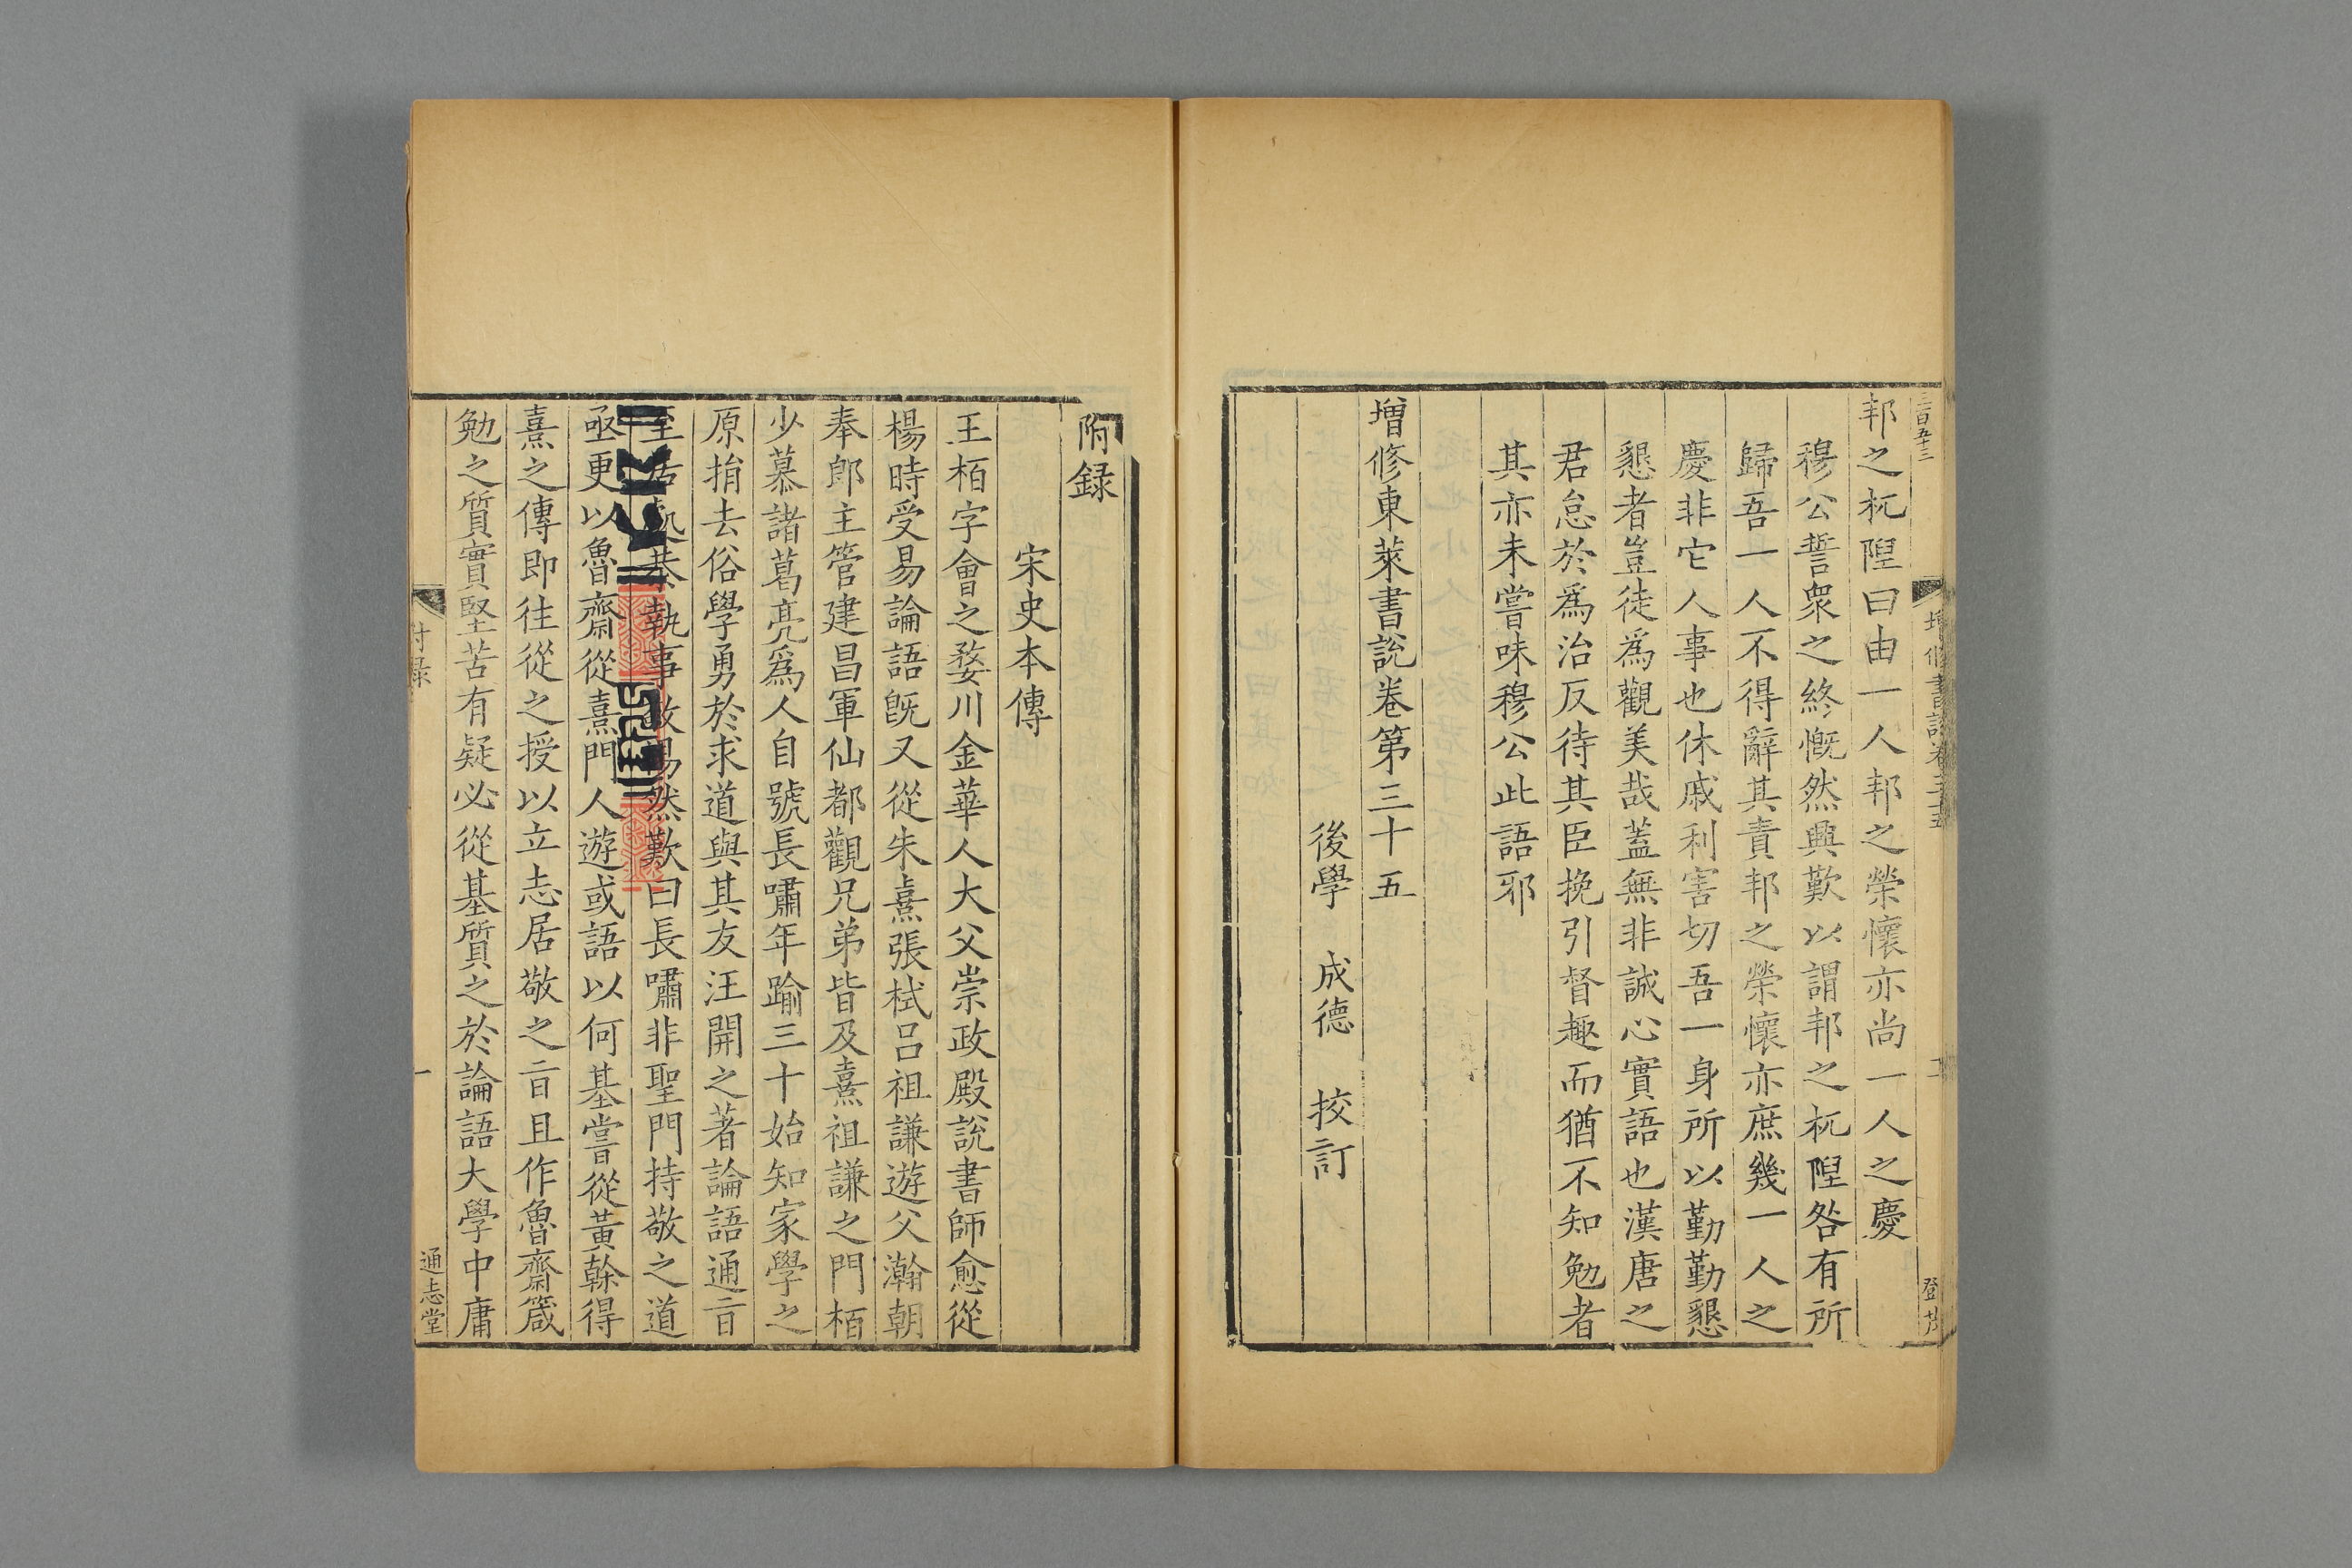 三百五十三
增修書說卷三十五
登茂
邦之杌隉曰由一人邦之榮懷亦尚一人之慶
穆公誓衆之終慨然興歎以謂邦之杌隉咎有所
歸吾一人不得辭其責邦之榮懷亦庶幾一人之
慶非它人事也休戚利害切吾一身所以勤勤懇
懇者豈徒爲觀美哉蓋無非誠心實語也漢唐之
君怠於爲治反待其臣挽引督趣而猶不知勉者
其亦未嘗味穆公此語邪
增修東萊書說卷第三十五
後學　成德　挍訂
附録
宋史本傳
王柏字會之婺川金華人大父崇政殿說書師愈從
楊時受易論語旣又從朱熹張栻呂祖謙遊父瀚朝
奉郎主管建昌軍仙都觀兄弟皆及熹祖謙之門栢
少慕諸葛亮爲人自號長嘯年踰三十始知家學之
原捐去俗學勇於求道與其友汪開之著論語通㫖
至居處恭執事敬惕然歎曰長嘯非聖門持敬之道
亟更以魯齋從熹門人遊或語以何基嘗從黃榦得
熹之傳即往從之授以立志居敬之㫖且作魯齋箴
勉之質實堅苦有疑必從基質之於論語大學中庸
付録
一
通志堂